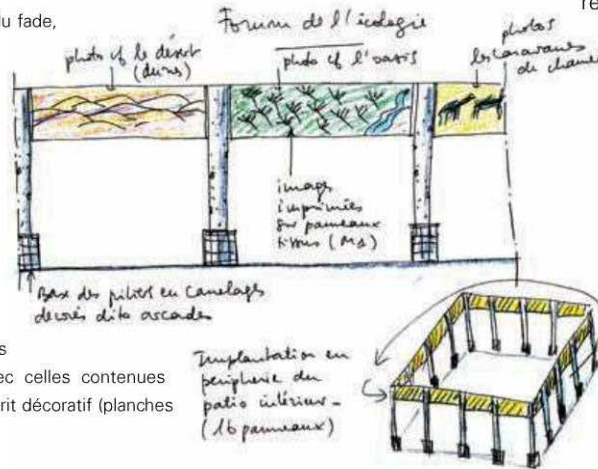 du fade,
re
Forum de l'écologie
photo cf le désert
(dunes)
photo cf l'oasis
photos
les caravanes
de
images
imprimées
sur panneaux
tissus (M1)
Base des piliers en carrelages
décorés dito arcades
s
ec celles contenues
rit décoratif (planches
Implantation en
périphérie du
patio intérieur -
(16 panneaux)